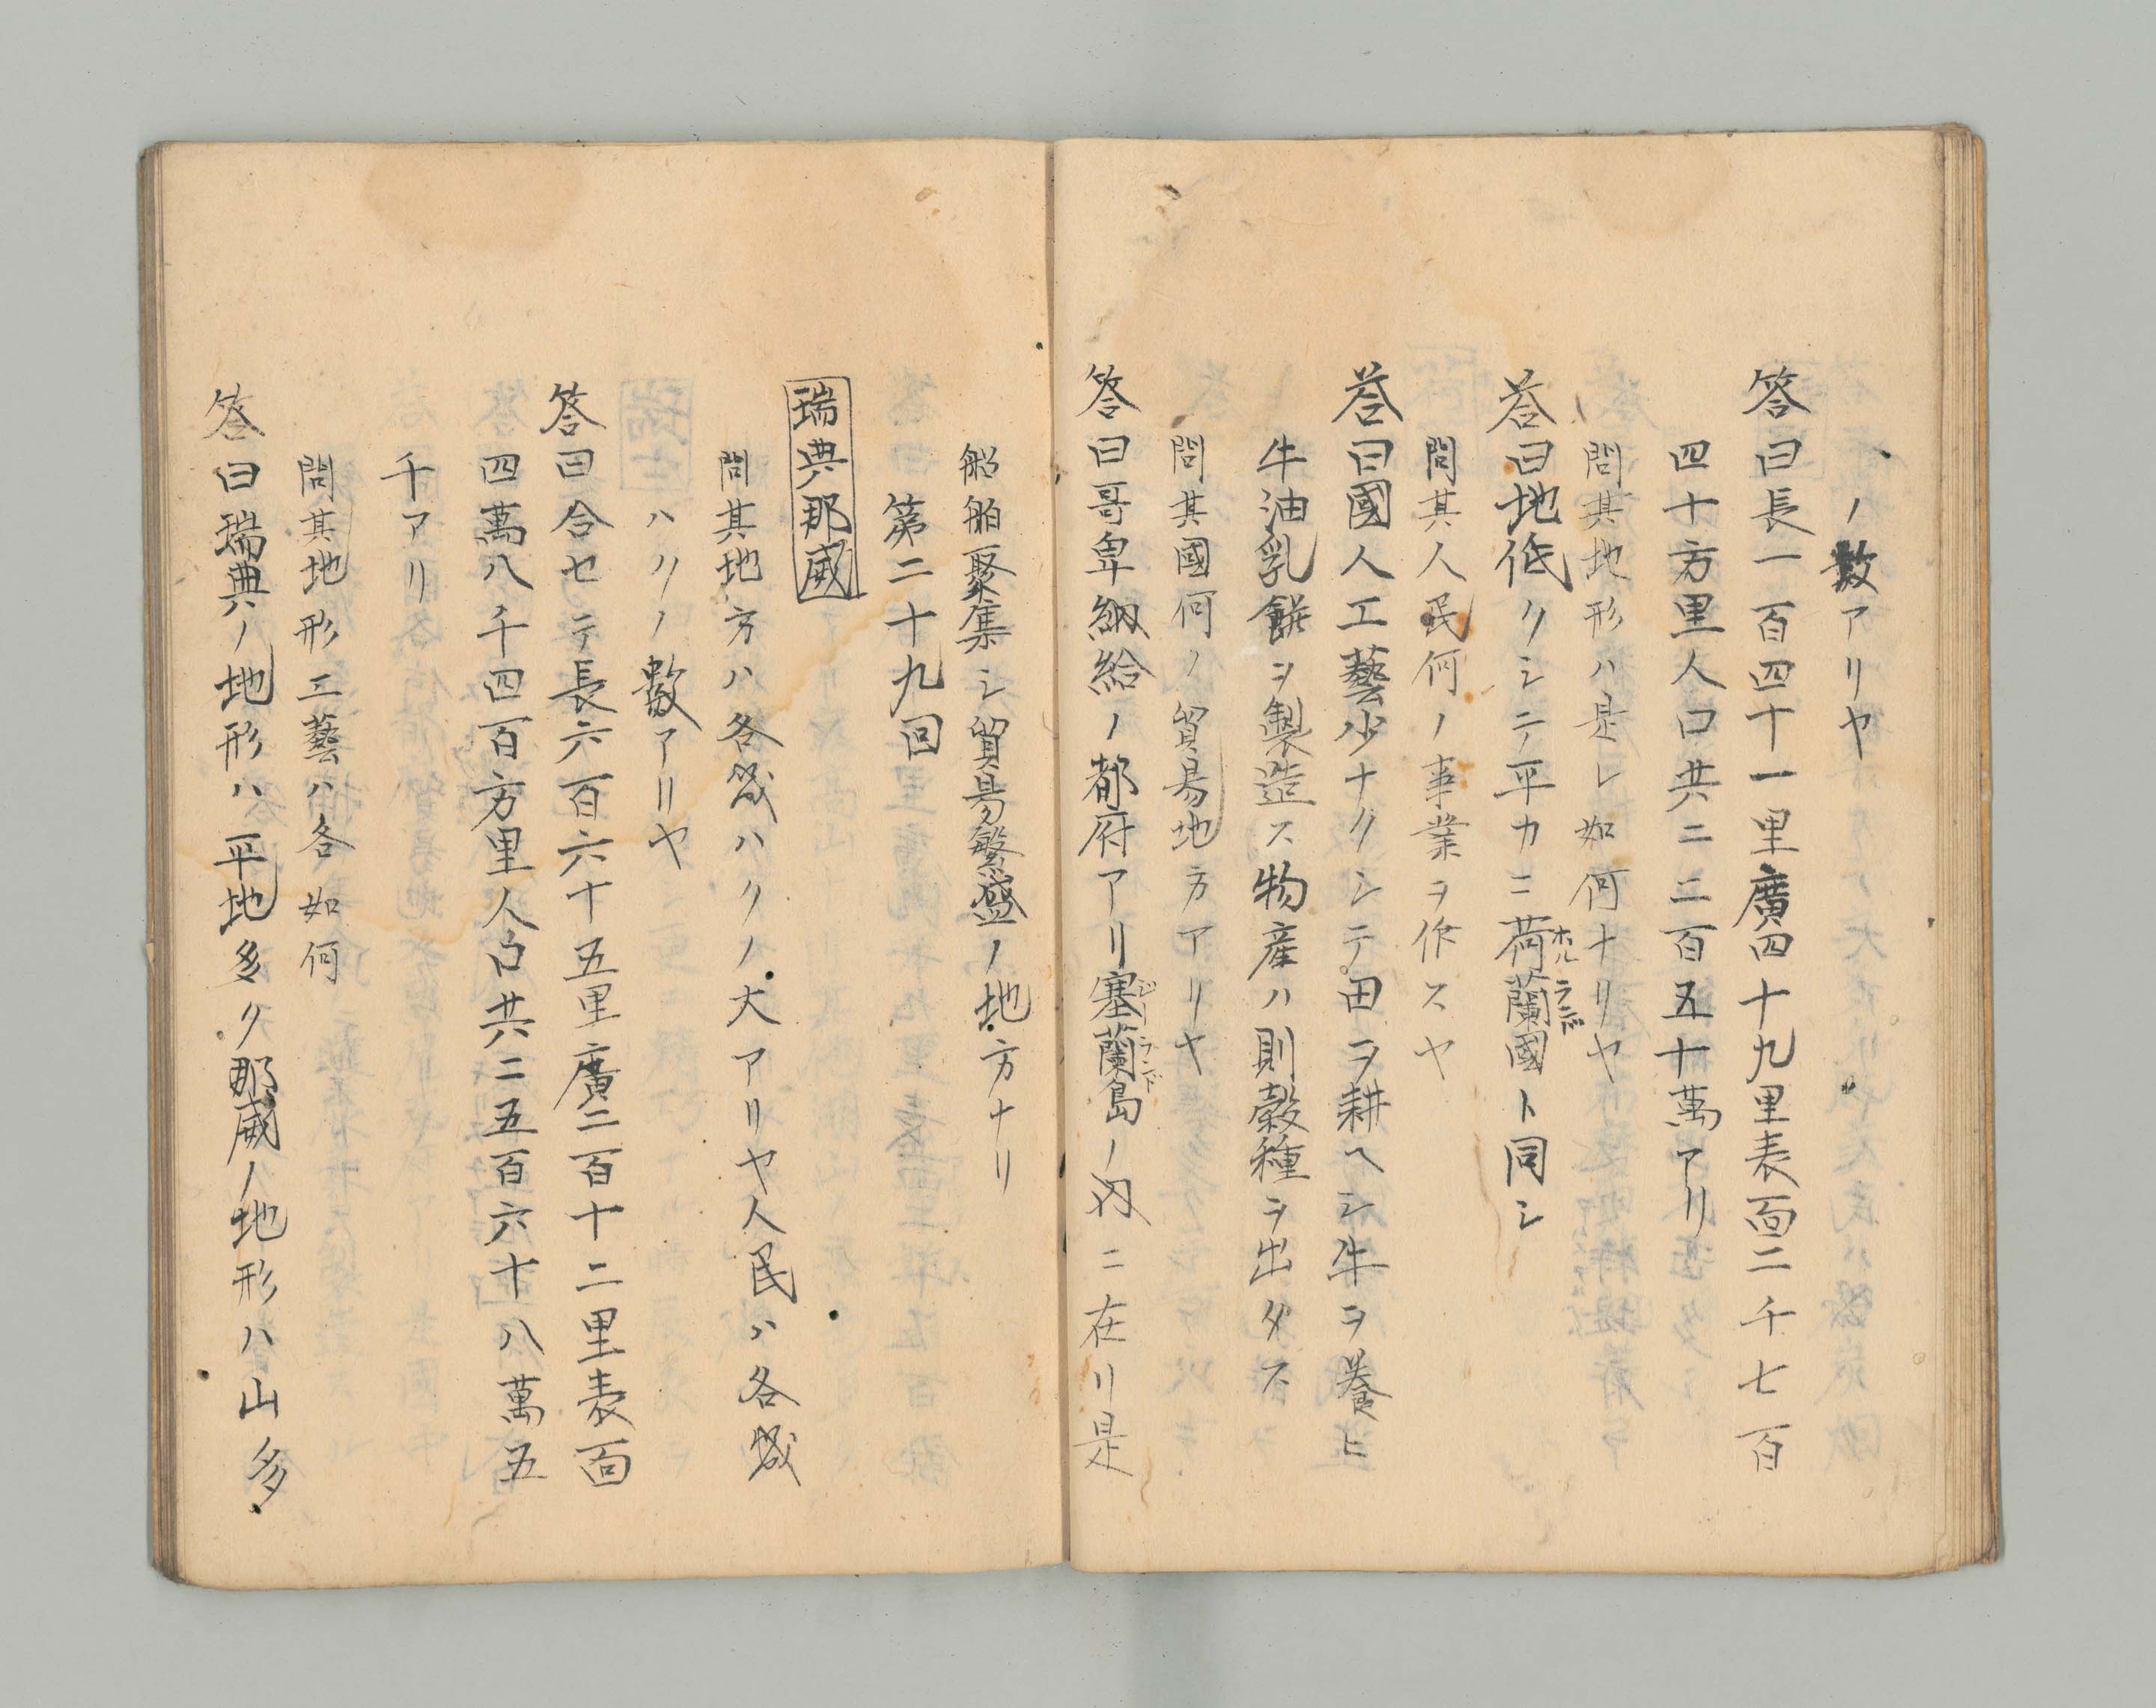 ノ數アリヤ
答曰長一百四十一里廣四十九里表面二千七百
四十方里人口共ニ二百五十萬アリ
問其地形ハ是レ如何ナリヤ
荅曰地低クシテ平カニ荷蘭國ト同シ
ホルランド
問其人民何ノ事業ヲ作スヤ
荅曰國人工藝少ナクシテ田ヲ耕ヘシ牛ヲ養ヒ
牛油乳餅ヲ製造ス物産ハ則穀種ヲ出ダス
問其國何ノ貿易地方アリヤ
答曰哥卑納給ノ都府アリ塞蘭島ノ内ニ在リ是
ジーランド
船舶聚集シ貿易繁盛ノ地方ナリ
第二十九回
瑞典那威
問其地方ハ各幾ハクノ大アリヤ人民ハ各幾
ハクノ數アリヤ
答曰合セテ長六百六十五里廣二百十二里表面
四萬八千四百方里人口共ニ五百六十八萬五
千アリ
問其地形工藝ハ各如何
答曰瑞典ノ地形ハ平地多ク那威ノ地形ハ山多